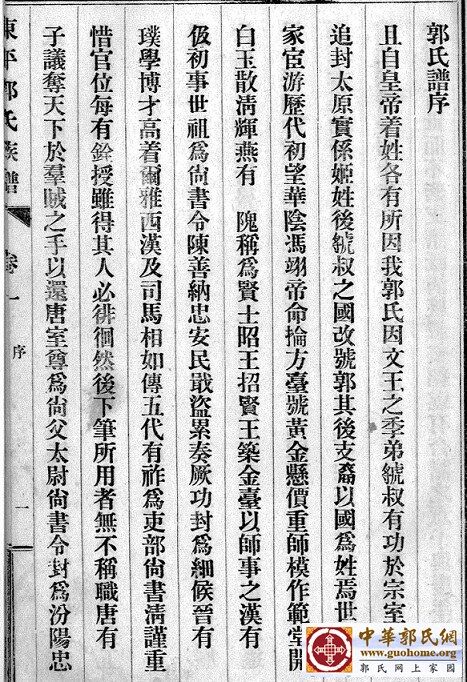 郭氏譜序
且自皇帝着姓各有所因我郭氏因文王之季弟虢叔有功於宗室
追封太原實係姬姓後虢叔之國改號郭其後支裔以國爲姓焉世
家宦游歷代初望華陰馮翊帝命掄方臺號黃金懸價重師模作範堂開
白玉散淸輝燕有 隗稱爲賢士昭王招賢王築金臺以師事之漢有
伋初事世祖爲尙書令陳善納忠安民戢盜累奏厥功封爲細候晉有
璞學博才高着爾雅西漢及司馬相如傳五代有祚爲吏部尙書淸謹重
惜官位每有銓授雖得其人必徘徊然後下筆所用者無不稱職唐有
子議奪天下於羣賊之手以還唐室尊爲尙父太尉尙書令封爲汾陽忠
東平郭氏族譜 卷一 序 一
中華郭氏網
www.guohome.org
郭氏网上家园